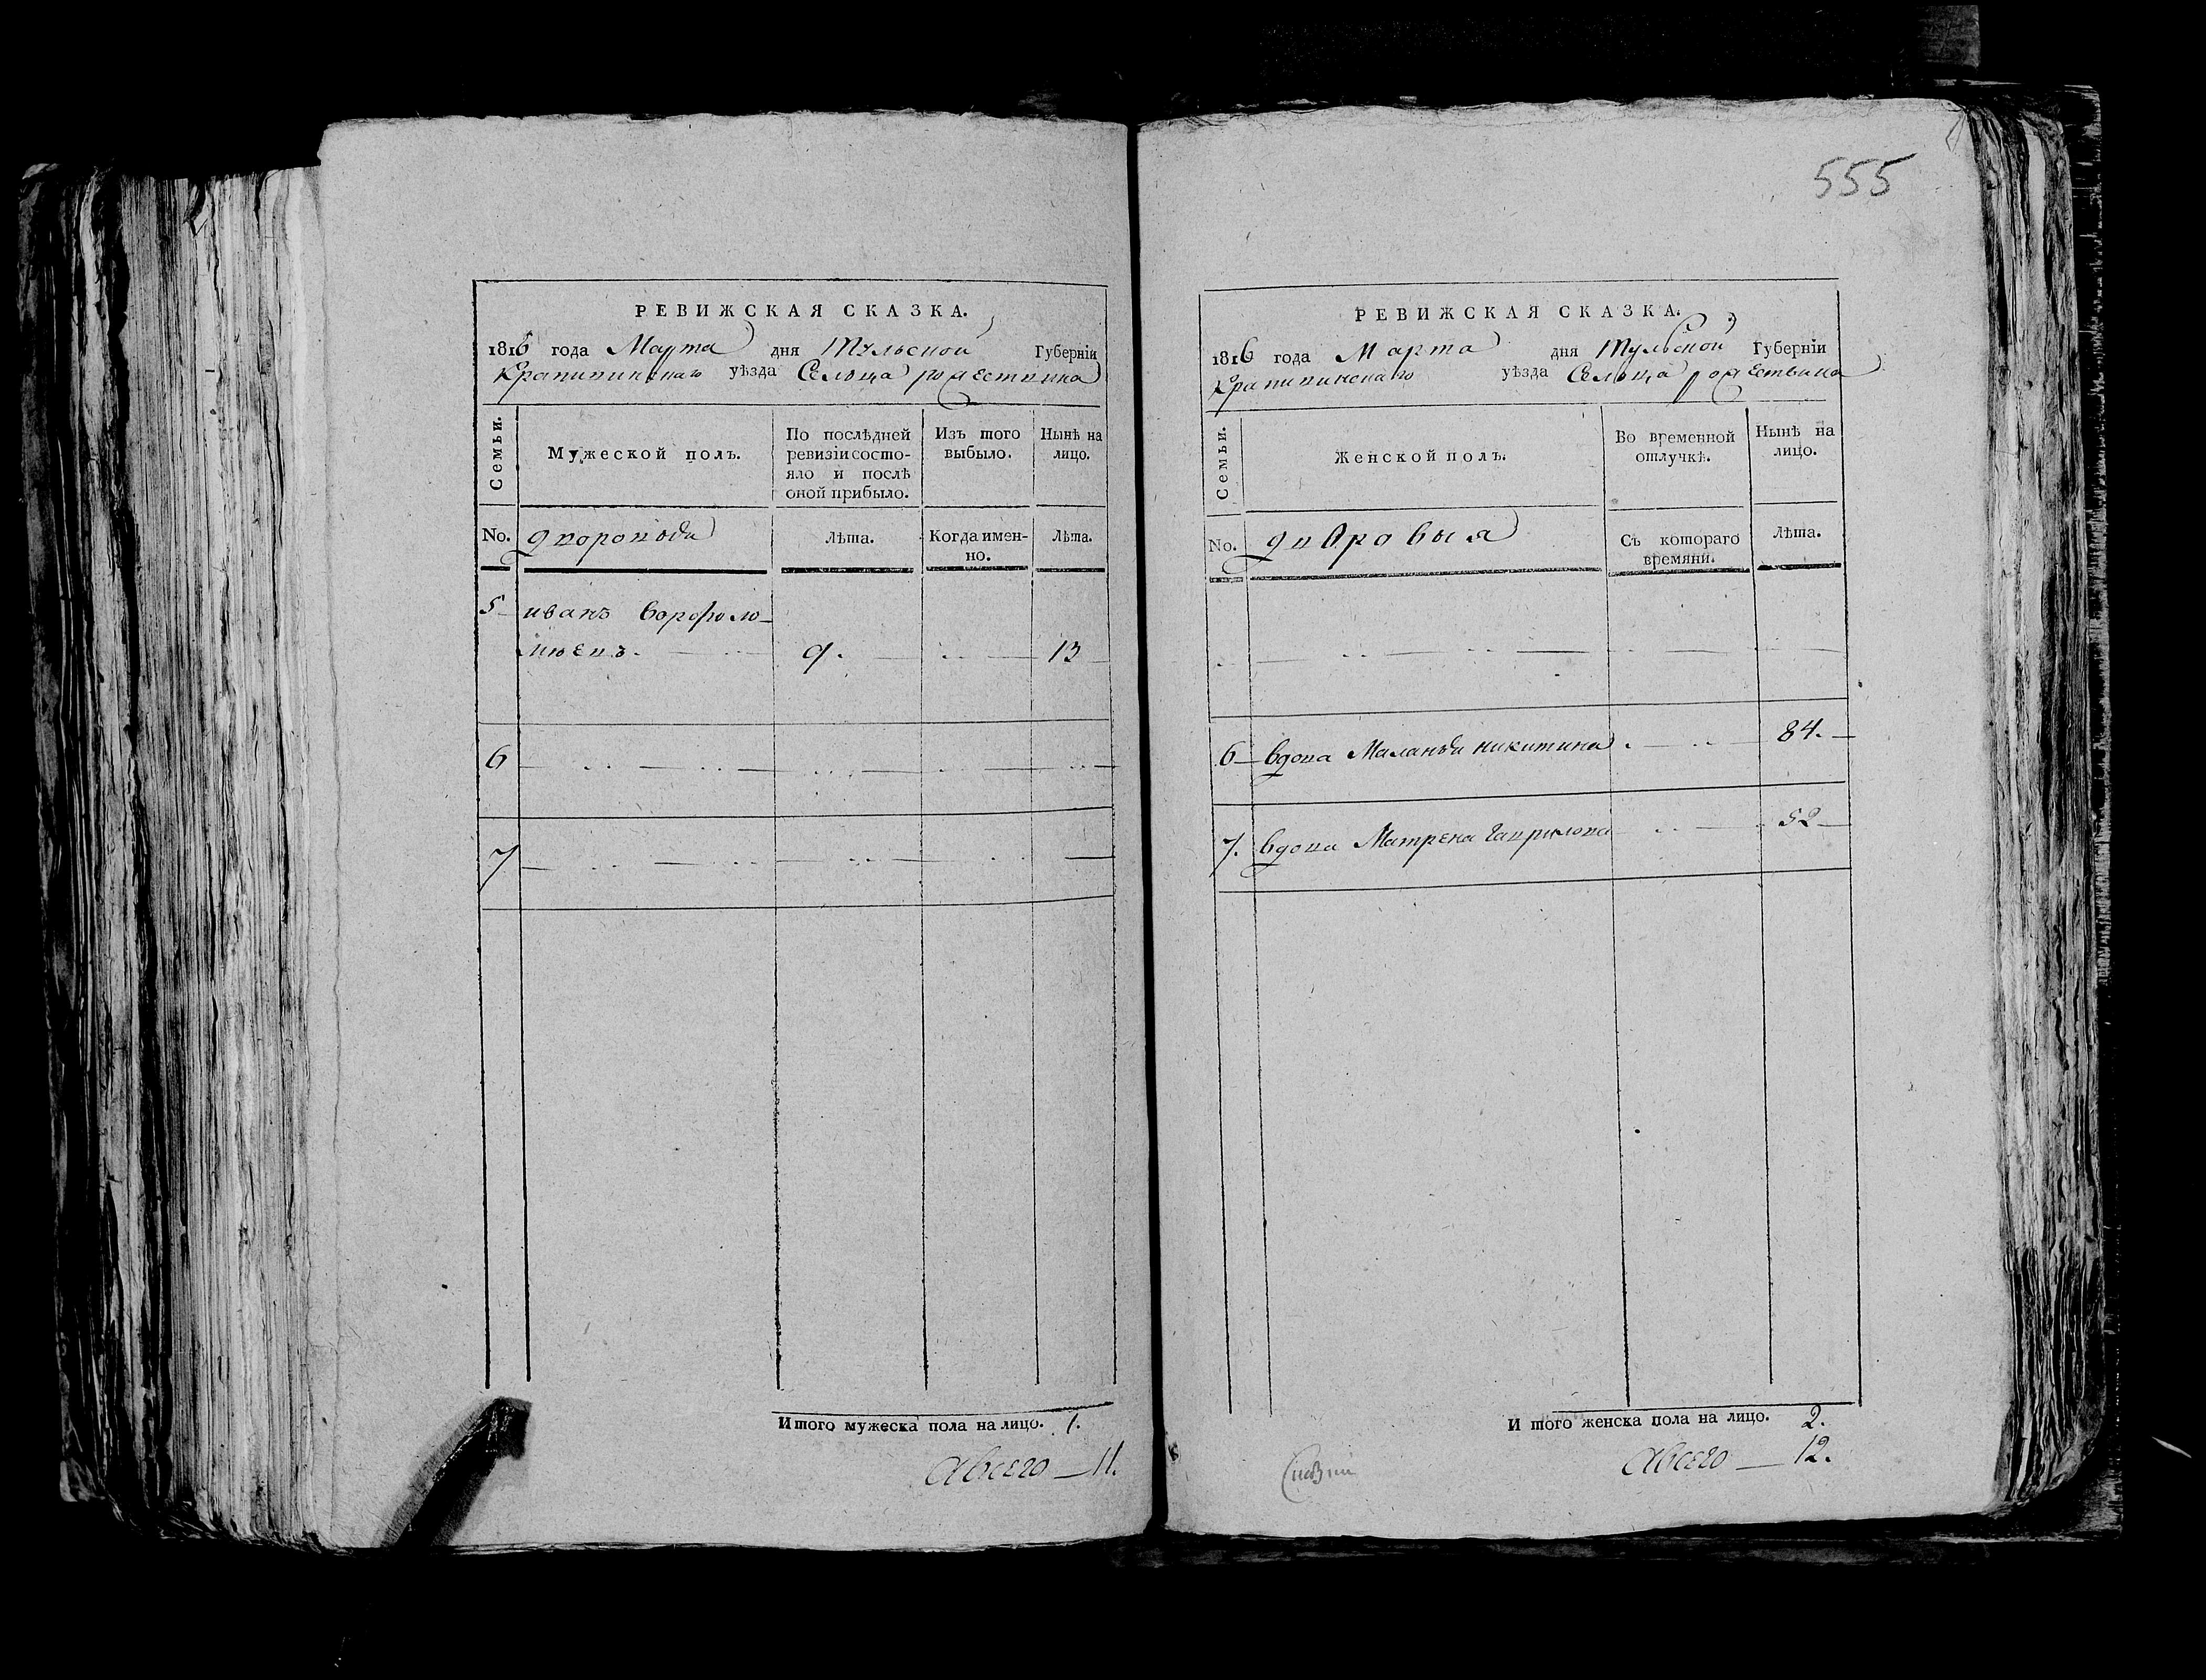 555
РЕВИЖСКАЯ СКАЗКА.
1816 года Марта дня Тульской Губерніи
Крапивинскаго уѣзда Сельца рождествина
Семьи.
Мужеской полъ.
По послѣдней ревизіи состо-
яло и послѣ
оной прибыло.
Изъ того
выбыло.
Нынѣ на
лицо.
No.
дворовыя
Лѣта.
Когда имен-
но.
Лѣта.
5 иванъ ворфоло-
мѣевъ. 9. 13
6
7
Итого мужеска пола на лицо. 1.
Авсего 11.
РЕВИЖСКАЯ СКАЗКА.
1816 года Марта дня Тульской Губерніи
Крапивинскаго уѣзда Сельца рождествина
Семьи.
Женской полъ.
Во временной
отлучкѣ.
Нынѣ на
лицо.
No.
дворовыя
Съ котораго
времяни.
Лѣта.
6 вдова Маланья никитина. 84.
7. вдова Матрена гаврилова 52
И того женска пола на лицо. 2.
Авсего 12.